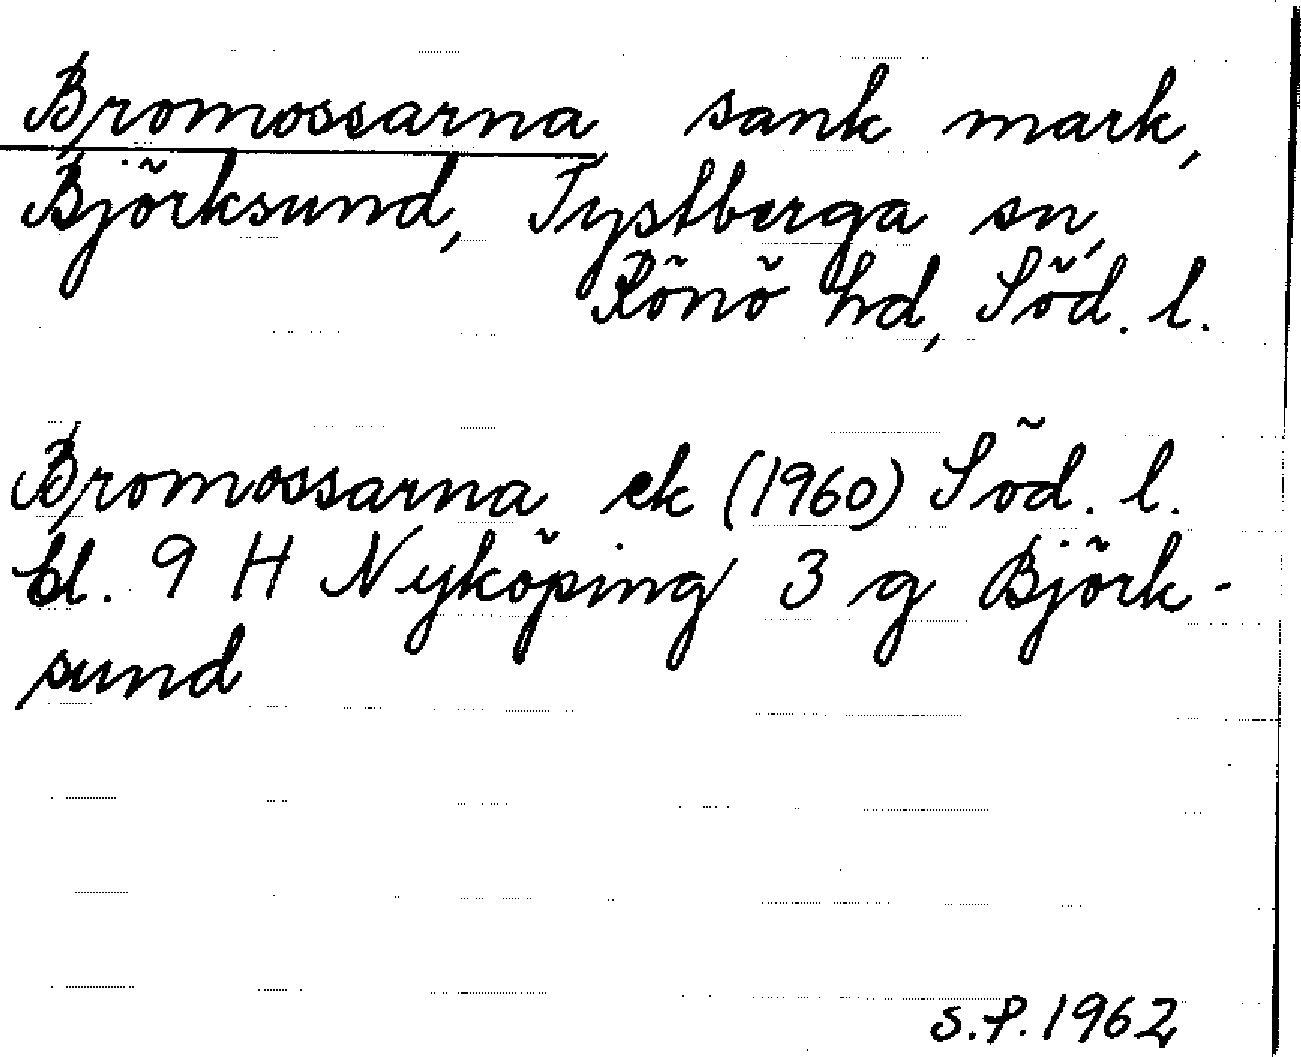 Bromossarna sank mark,
Björksund, Tystberga sn,
Rönö hd, Söd. l.
Bromossarna ek (1960) Söd. l.
bl. 9 H Nyköping 3 g Björk-
sund
S.P. 1962